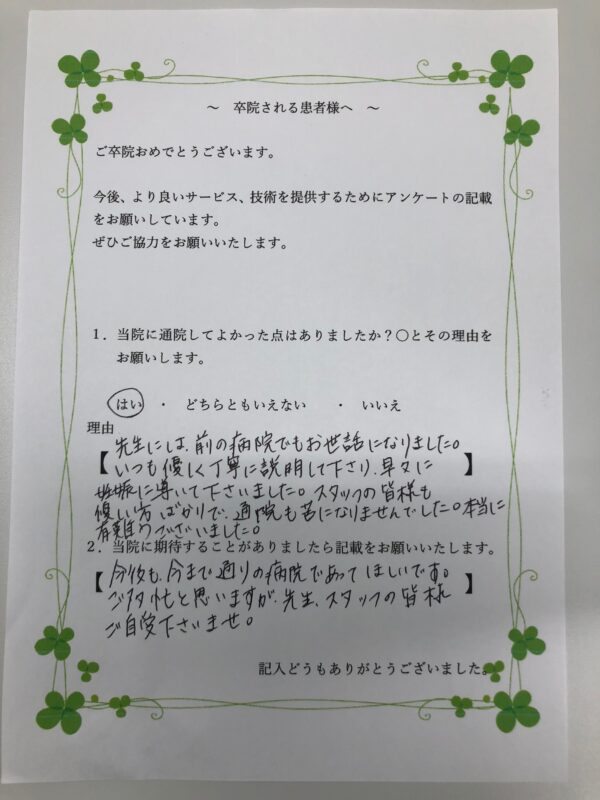 ～　卒院される患者様へ　～
ご卒院おめでとうございます。
今後、より良いサービス、技術を提供するためにアンケートの記載
をお願いしています。
ぜひご協力をお願いいたします。
1．当院に通院してよかった点はありましたか？〇とその理由を
お願いします。
はい　・　どちらともいえない　・　いいえ
理由
先生には、前の病院でもお世話になりました。
【いつも優しく丁寧に説明して下さり、早々に】
妊娠に導いて下さいました。スタッフの皆様も
優しい方ばかりで、通院も苦になりませんでした。本当に
有難うございました。
2．当院に期待することがありましたら記載をお願いいたします。
【今後も、今まで通りの病院であってほしいです。】
ご多忙と思いますが、先生、スタッフの皆様
ご自愛下さいませ。
記入どうもありがとうございました。